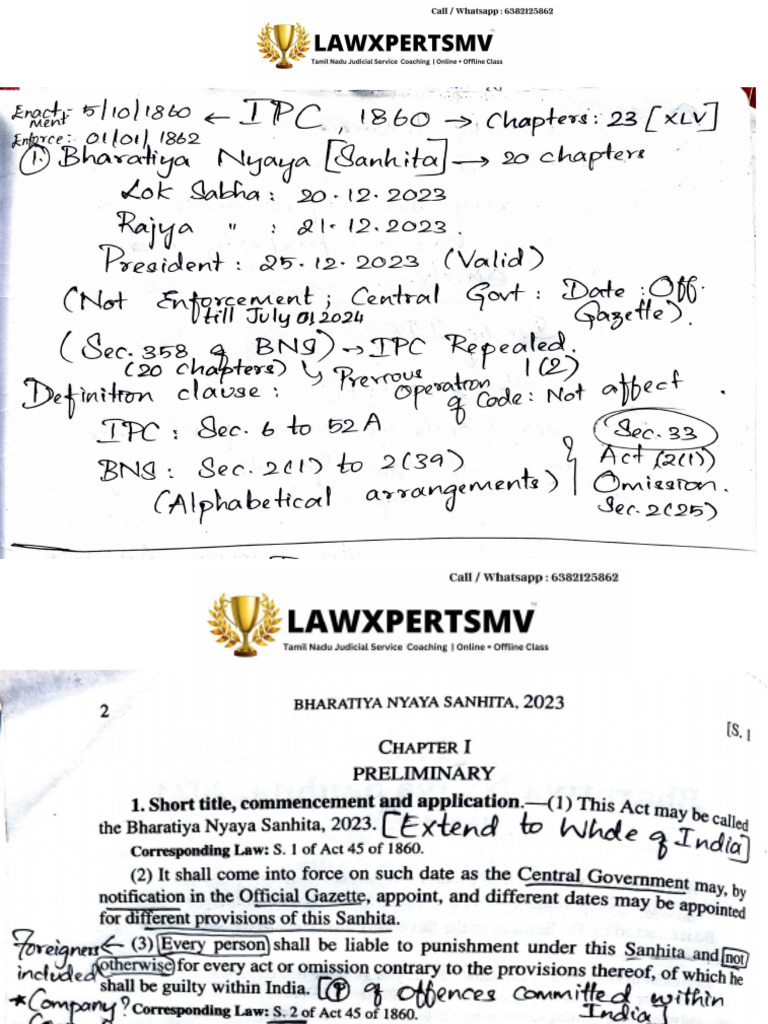 Call / Whatsapp : 6382125862
LAWXPERTSMV
Tamil Nadu Judicial Service Coaching | Online + Offline Class
Enactment :- 5/10/1860 ← IPC, 1860 → Chapters: 23 [XLV]
Enforce: 01/01/1862
① Bharatiya Nyaya [Sanhita] → 20 chapters
Lok Sabha: 20.12.2023
Rajya " : 21.12.2023.
President: 25.12.2023 (Valid)
(Not Enforcement; Central Govt: Date: Off. Gazette).
till July 01, 2024
(Sec. 358 of BNS) → IPC Repealed.
(20 chapters) ↳ Previous Operation of Code: Not affect.
1(2)
Definition clause:
IPC: Sec. 6 to 52A
BNS: Sec. 2(1) to 2(39)
(Alphabetical arrangements)
Sec. 33
Act (2(1))
Omission.
Sec. 2(25)
Call / Whatsapp : 6382125862
LAWXPERTSMV
Tamil Nadu Judicial Service Coaching | Online + Offline Class
2 BHARATIYA NYAYA SANHITA, 2023 [S. 1
CHAPTER I
PRELIMINARY
1. Short title, commencement and application.—(1) This Act may be called
the Bharatiya Nyaya Sanhita, 2023. [Extend to Whole of India]
Corresponding Law: S. 1 of Act 45 of 1860.
(2) It shall come into force on such date as the Central Government may, by
notification in the Official Gazette, appoint, and different dates may be appointed
for different provisions of this Sanhita.
Foreigners included ← (3) Every person shall be liable to punishment under this Sanhita and not
otherwise for every act or omission contrary to the provisions thereof, of which he
shall be guilty within India. [(P) of offences committed within India]
* Company? Corresponding Law: S. 2 of Act 45 of 1860.